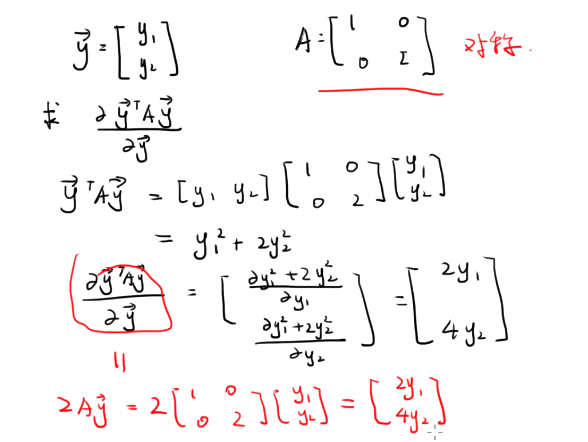 $\vec{y} = \begin{bmatrix} y_1 \\ y_2 \end{bmatrix}$ $A = \begin{bmatrix} 1 & 0 \\ 0 & 2 \end{bmatrix}$ 对称.
求 $\frac{\partial \vec{y}^T A \vec{y}}{\partial \vec{y}}$
$\vec{y}^T A \vec{y} = [y_1 \ y_2] \begin{bmatrix} 1 & 0 \\ 0 & 2 \end{bmatrix} \begin{bmatrix} y_1 \\ y_2 \end{bmatrix}$
$= y_1^2 + 2y_2^2$
$\frac{\partial \vec{y}^T A \vec{y}}{\partial \vec{y}} = \begin{bmatrix} \frac{\partial y_1^2 + 2y_2^2}{\partial y_1} \\ \frac{\partial y_1^2 + 2y_2^2}{\partial y_2} \end{bmatrix} = \begin{bmatrix} 2y_1 \\ 4y_2 \end{bmatrix}$
||
$2A\vec{y} = 2 \begin{bmatrix} 1 & 0 \\ 0 & 2 \end{bmatrix} \begin{bmatrix} y_1 \\ y_2 \end{bmatrix} = \begin{bmatrix} 2y_1 \\ 4y_2 \end{bmatrix}$